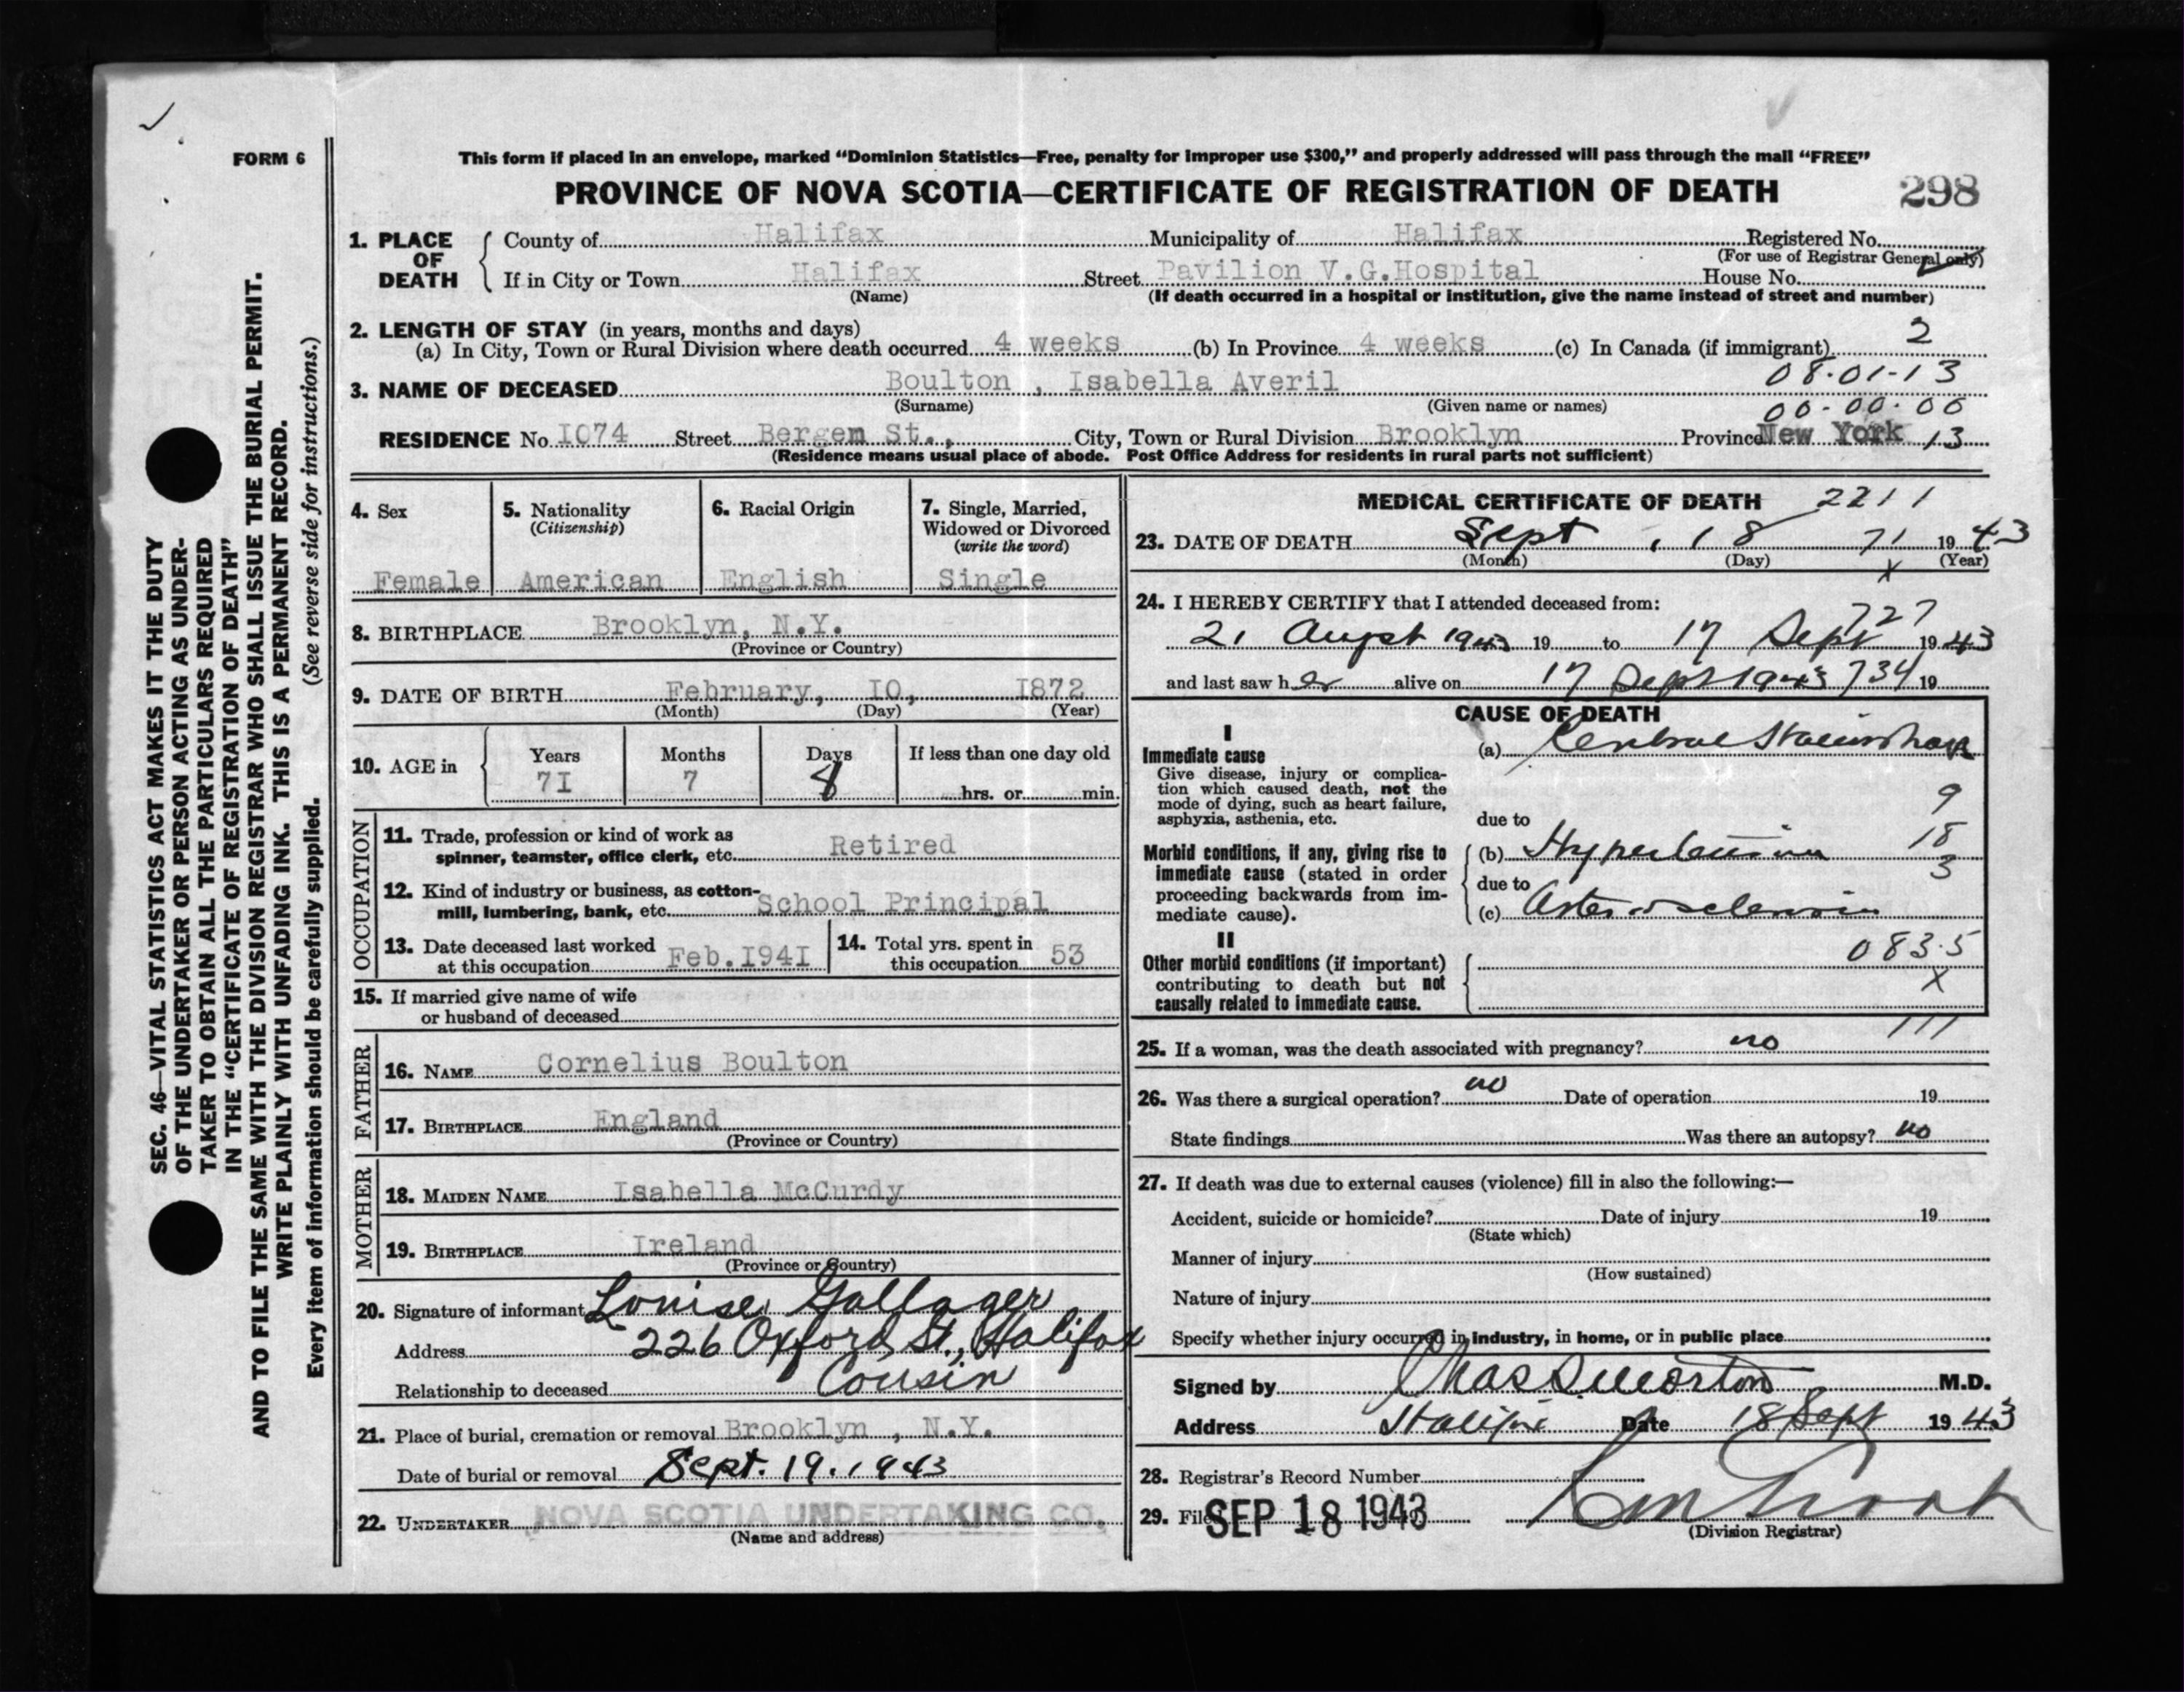 FORM 6
This form if placed in an envelope, marked “Dominion Statistics—Free, penalty for improper use $300,” and properly addressed will pass through the mail “FREE”
PROVINCE OF NOVA SCOTIA—CERTIFICATE OF REGISTRATION OF DEATH 298
SEC. 46—VITAL STATISTICS ACT MAKES IT THE DUTY
OF THE UNDERTAKER OR PERSON ACTING AS UNDER-
TAKER TO OBTAIN ALL THE PARTICULARS REQUIRED
IN THE “CERTIFICATE OF REGISTRATION OF DEATH”
AND TO FILE THE SAME WITH THE DIVISION REGISTRAR WHO SHALL ISSUE THE BURIAL PERMIT.
WRITE PLAINLY WITH UNFADING INK. THIS IS A PERMANENT RECORD.
Every item of information should be carefully supplied. (See reverse side for instructions.)
1. PLACE OF DEATH County of Halifax Municipality of Halifax Registered No.
(For use of Registrar General only)
If in City or Town Halifax Street Pavilion V.G.Hospital House No.
(Name) (If death occurred in a hospital or institution, give the name instead of street and number)
2. LENGTH OF STAY (in years, months and days)
(a) In City, Town or Rural Division where death occurred 4 weeks (b) In Province 4 weeks (c) In Canada (if immigrant) 2
08-01-13
3. NAME OF DECEASED Boulton , Isabella Averil
(Surname) (Given name or names) 00-00-00
RESIDENCE No. I074 Street Bergen St., City, Town or Rural Division Brooklyn Province New York 13
(Residence means usual place of abode. Post Office Address for residents in rural parts not sufficient)
4. Sex
Female
5. Nationality
(Citizenship)
American
6. Racial Origin
English
7. Single, Married,
Widowed or Divorced
(write the word)
Single
8. BIRTHPLACE Brooklyn, N.Y.
(Province or Country)
9. DATE OF BIRTH February, I0, I872
(Month) (Day) (Year)
10. AGE in Years Months Days If less than one day old
7I 7 8 hrs. or min.
OCCUPATION
11. Trade, profession or kind of work as
spinner, teamster, office clerk, etc. Retired
12. Kind of industry or business, as cotton-
mill, lumbering, bank, etc. School Principal
13. Date deceased last worked
at this occupation Feb.I94I
14. Total yrs. spent in
this occupation 53
15. If married give name of wife
or husband of deceased
FATHER
16. NAME Cornelius Boulton
17. BIRTHPLACE England
(Province or Country)
MOTHER
18. MAIDEN NAME Isabella McCurdy
19. BIRTHPLACE Ireland
(Province or Country)
20. Signature of informant Louise Gallager
Address 226 Oxford St., Halifax
Relationship to deceased Cousin
21. Place of burial, cremation or removal Brooklyn , N.Y.
Date of burial or removal Sept. 19. 1943
22. UNDERTAKER NOVA SCOTIA UNDERTAKING CO.
(Name and address)
MEDICAL CERTIFICATE OF DEATH 2211
23. DATE OF DEATH Sept , 18 71 1943
(Month) (Day) x (Year)
24. I HEREBY CERTIFY that I attended deceased from: 727
21 August 1943 19 to 17 Sept 1943
and last saw her alive on 17 Sept 1943 734 19
CAUSE OF DEATH
I
Immediate cause
Give disease, injury or complica-
tion which caused death, not the
mode of dying, such as heart failure,
asphyxia, asthenia, etc.
(a) Cerebral
9
due to
18
Morbid conditions, if any, giving rise to
immediate cause (stated in order
proceeding backwards from im-
mediate cause).
(b) Hypertension
3
due to
(c) Arteriosclerosis
II
083.5
Other morbid conditions (if important)
contributing to death but not
causally related to immediate cause.
X
111
25. If a woman, was the death associated with pregnancy? no
26. Was there a surgical operation? no Date of operation 19
State findings Was there an autopsy? no
27. If death was due to external causes (violence) fill in also the following:—
Accident, suicide or homicide? Date of injury 19
(State which)
Manner of injury
(How sustained)
Nature of injury
Specify whether injury occurred in industry, in home, or in public place
Signed by Chas S Morton M.D.
Address Halifax Date 18 Sept 1943
28. Registrar's Record Number
29. File SEP 18 1943
(Division Registrar)